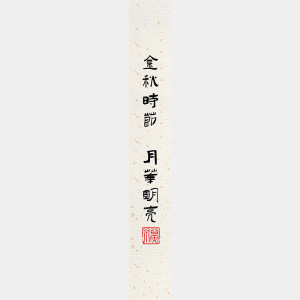 金秋時節 月華明亮